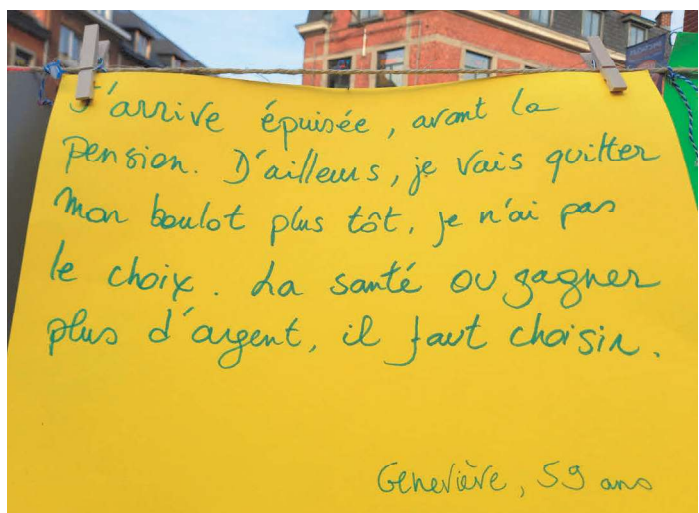 J'arrive épuisée, avant la
pension. D'ailleurs, je vais quitter
mon boulot plus tôt, je n'ai pas
le choix. La santé ou gagner
plus d'argent, il faut choisir.
Geneviève, 59 ans